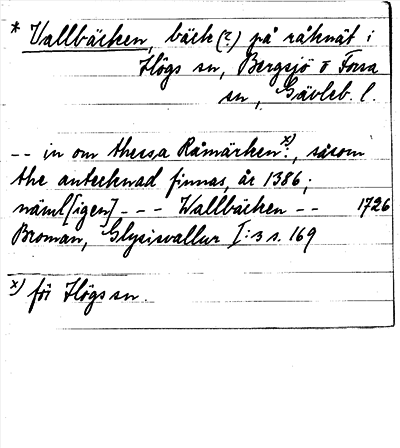 * Vallbäcken, bäck (?) på råknät i
Högs sn, Bergsjö o Forsa
sn, Gävleb. l.
-- in om thessa Råmärken x):, såsom
the antecknad finnas, år 1386;
näml[igen] --- Wallbäcken -- 1726
Broman, Glysisvallur I:3 s. 169
x) för Högs sn.